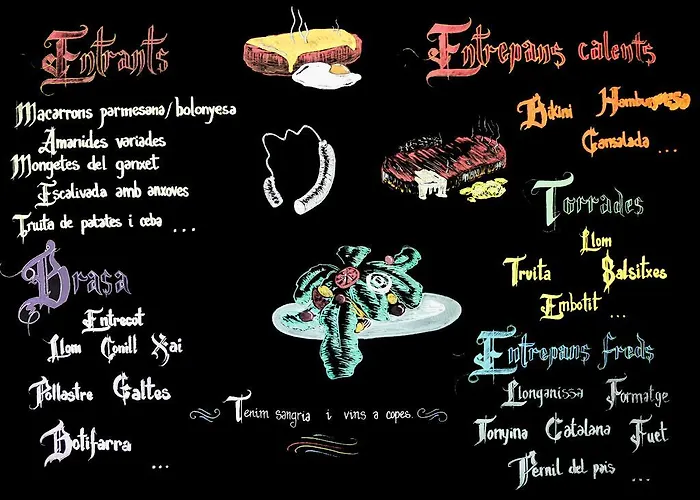 Entrants
Macarrons parmesana/bolonyesa
Amanides variades
Mongetes del ganxet
Escalivada amb anxoves
Truita de patates i ceba ...
Brasa
Entrecot
Llom Conill Xai
Pollastre Galtes
Botifarra
...
Entrepans calents
Bikini Hamburguesa
Cansalada ...
Torrades
Llom
Truita Salsitxes
Embotit ...
Entrepans freds
Llonganissa Formatge
Tonyina Catalana Fuet
Pernil del pais ...
Tenim sangria i vins a copes.